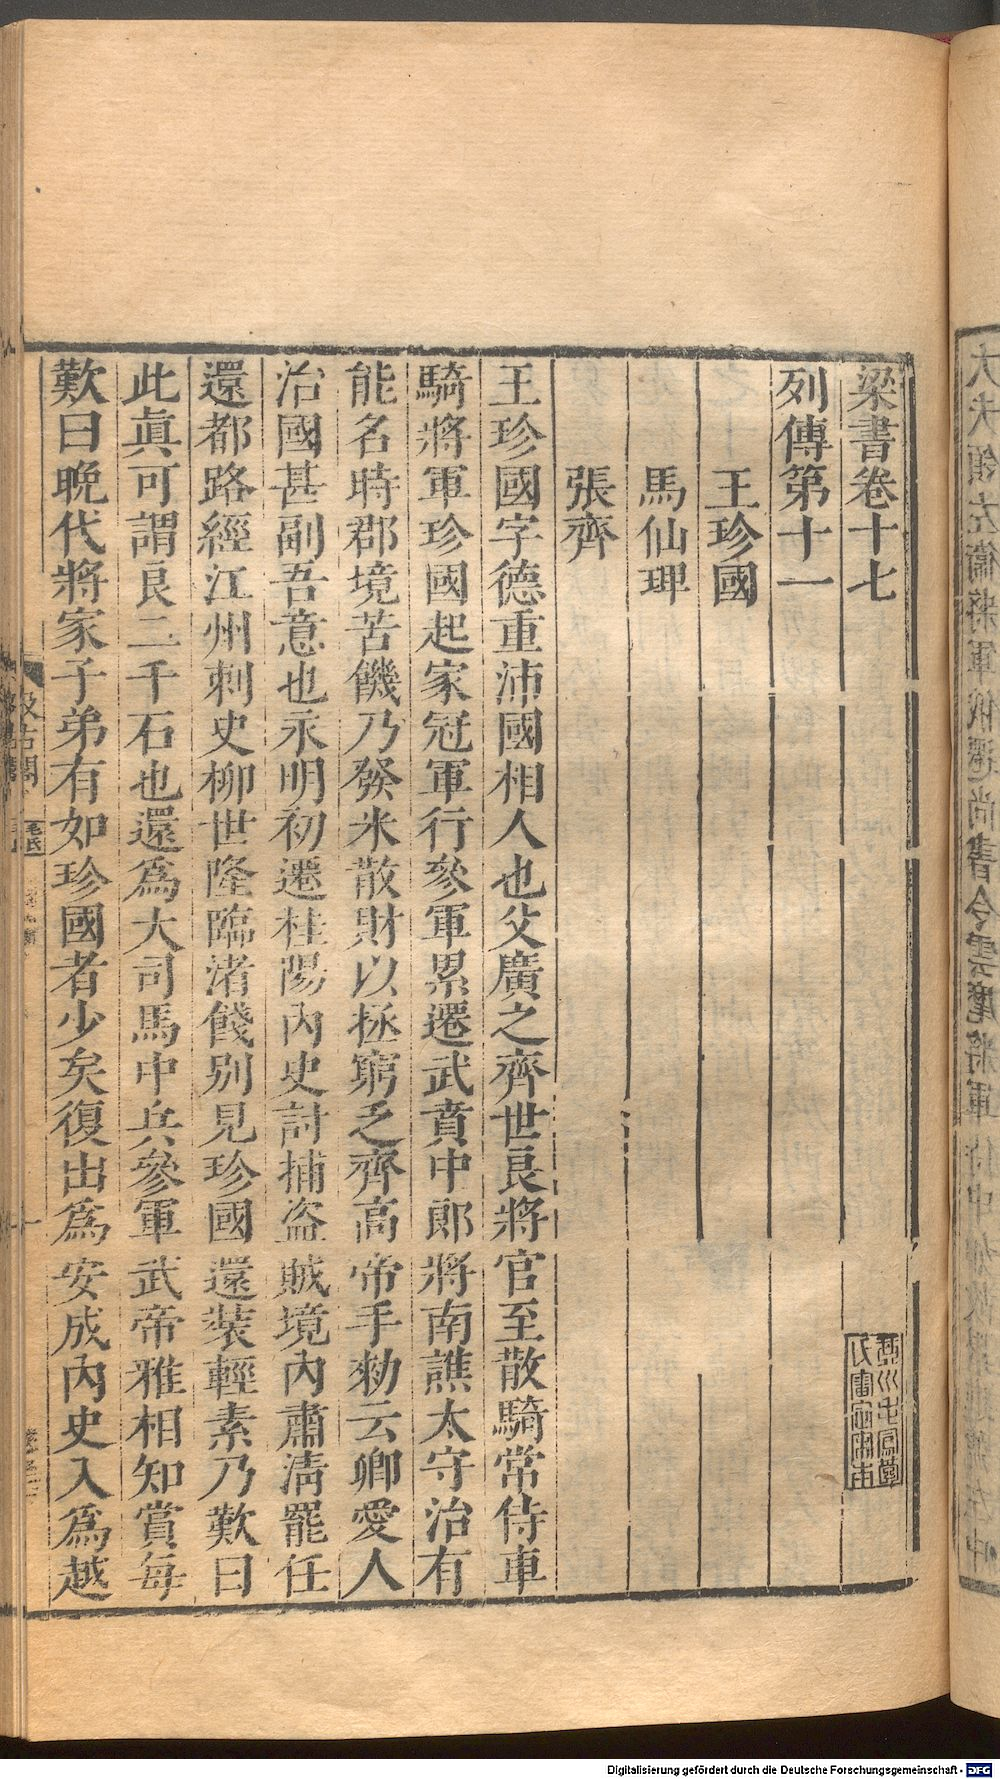 梁書卷十七
列傳第十一
王珍國
馬仙琕
張齊
王珍國字德重沛國相人也父廣之齊世良將官至散騎常侍車
騎將軍珍國起家冠軍行參軍累遷武賁中郎將南譙太守治有
能名時郡境苦饑乃發米散財以拯窮乏齊高帝手勑云卿愛人
治國甚副吾意也永明初遷桂陽內史討捕盜賊境內肅清罷任
還都路經江州刺史柳世隆臨渚餞別見珍國還装輕素乃歎曰
此眞可謂良二千石也還爲大司馬中兵參軍武帝雅相知賞每
歎曰晚代將家子弟有如珍國者少矣復出爲安成內史入爲越
汲古閣
毛氏
Digitalisierung gefördert durch die Deutsche Forschungsgemeinschaft - DFG